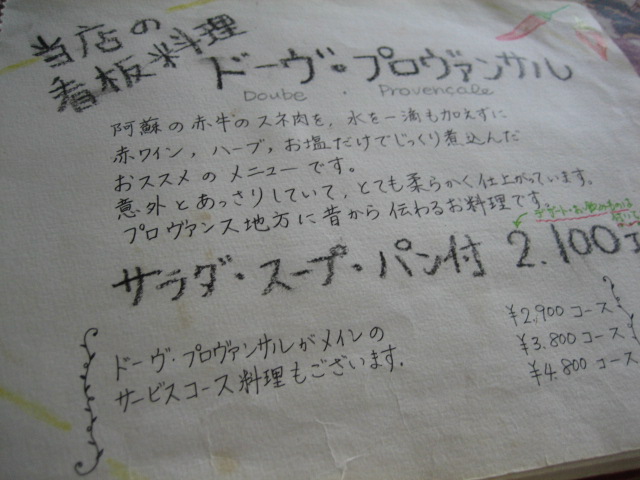 当店の
看板料理
ドーヴ・プロヴァンサル
Doube ・ Provençale
阿蘇の赤牛のスネ肉を,水を一滴も加えずに
赤ワイン,ハーブ,お塩だけでじっくり煮込んだ
おススメのメニューです。
意外とあっさりしていて,とても柔らかく仕上がっています。
プロヴァンス地方に昔から伝わるお料理です。
サラダ・スープ・パン付 2.100
ドーヴ・プロヴァンサルがメインの
サービスコース料理もございます.
¥2,900 コース
¥3.800 コース
¥4.800 コース